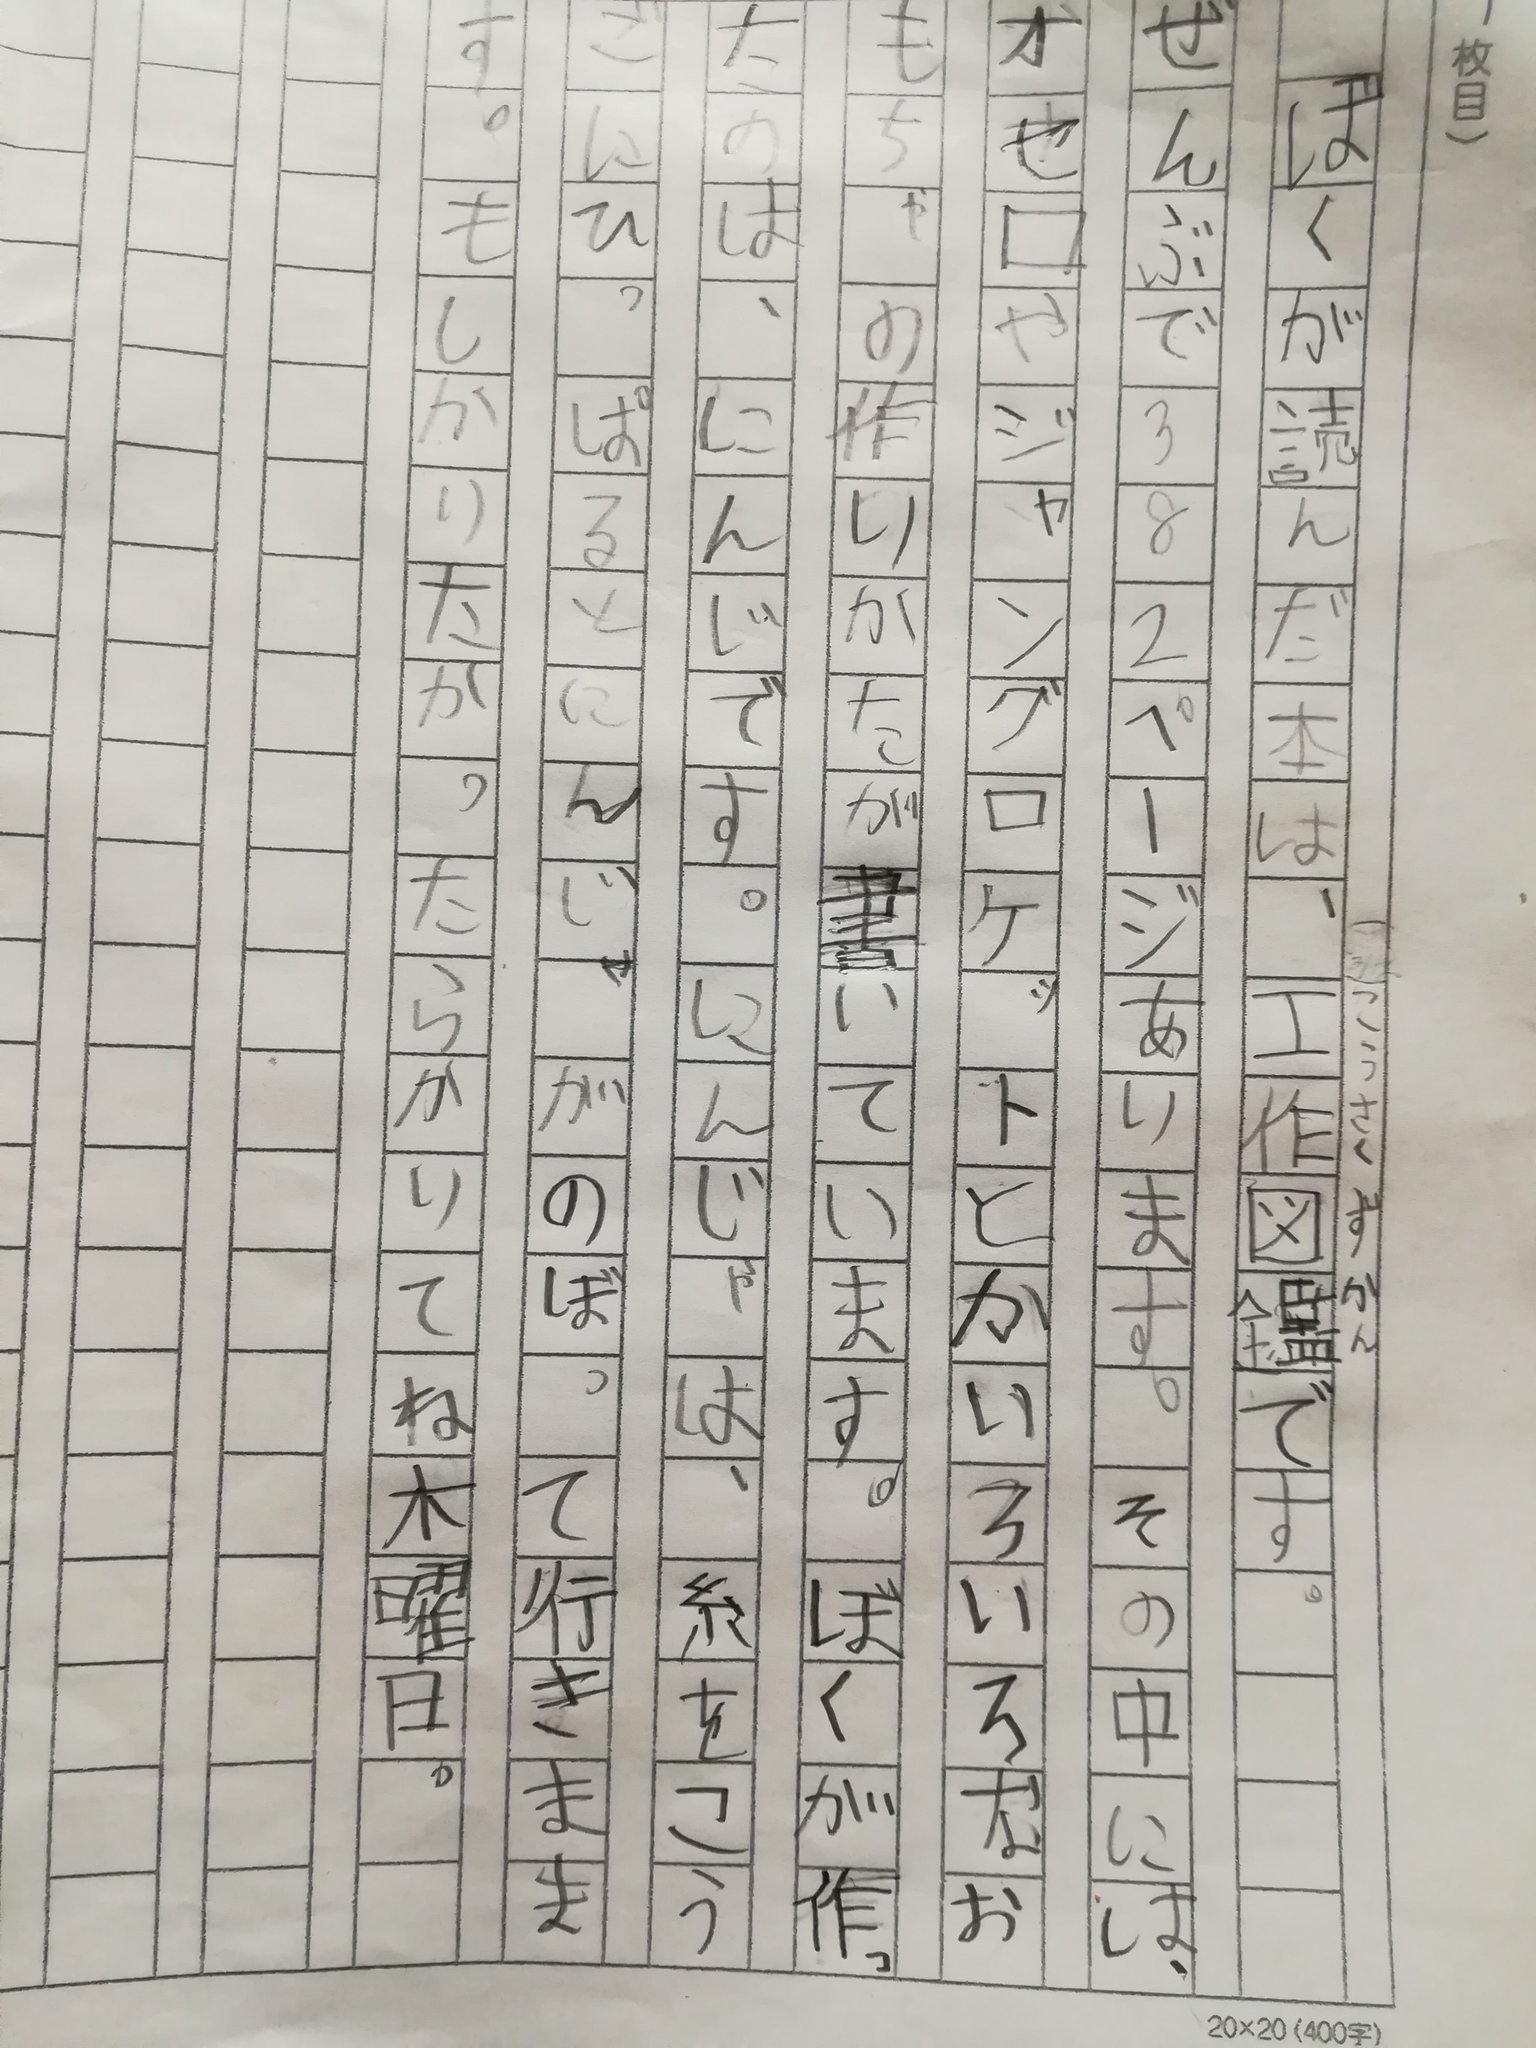 枚目)
ぼくが読んだ本は、工作図鑑です。
こうさくずかん
ぜんぶで382ページあります。その中には、
オセロやジャングロケットとかいろいろなお
もちゃの作りかたが書いています。ぼくが作っ
たのは、にんじです。にんじゃは、糸をこう
ごにひっぱるとにんじゃがのぼって行きまま
す。もしかりたかったらかりてね木曜日。
20×20(400字)